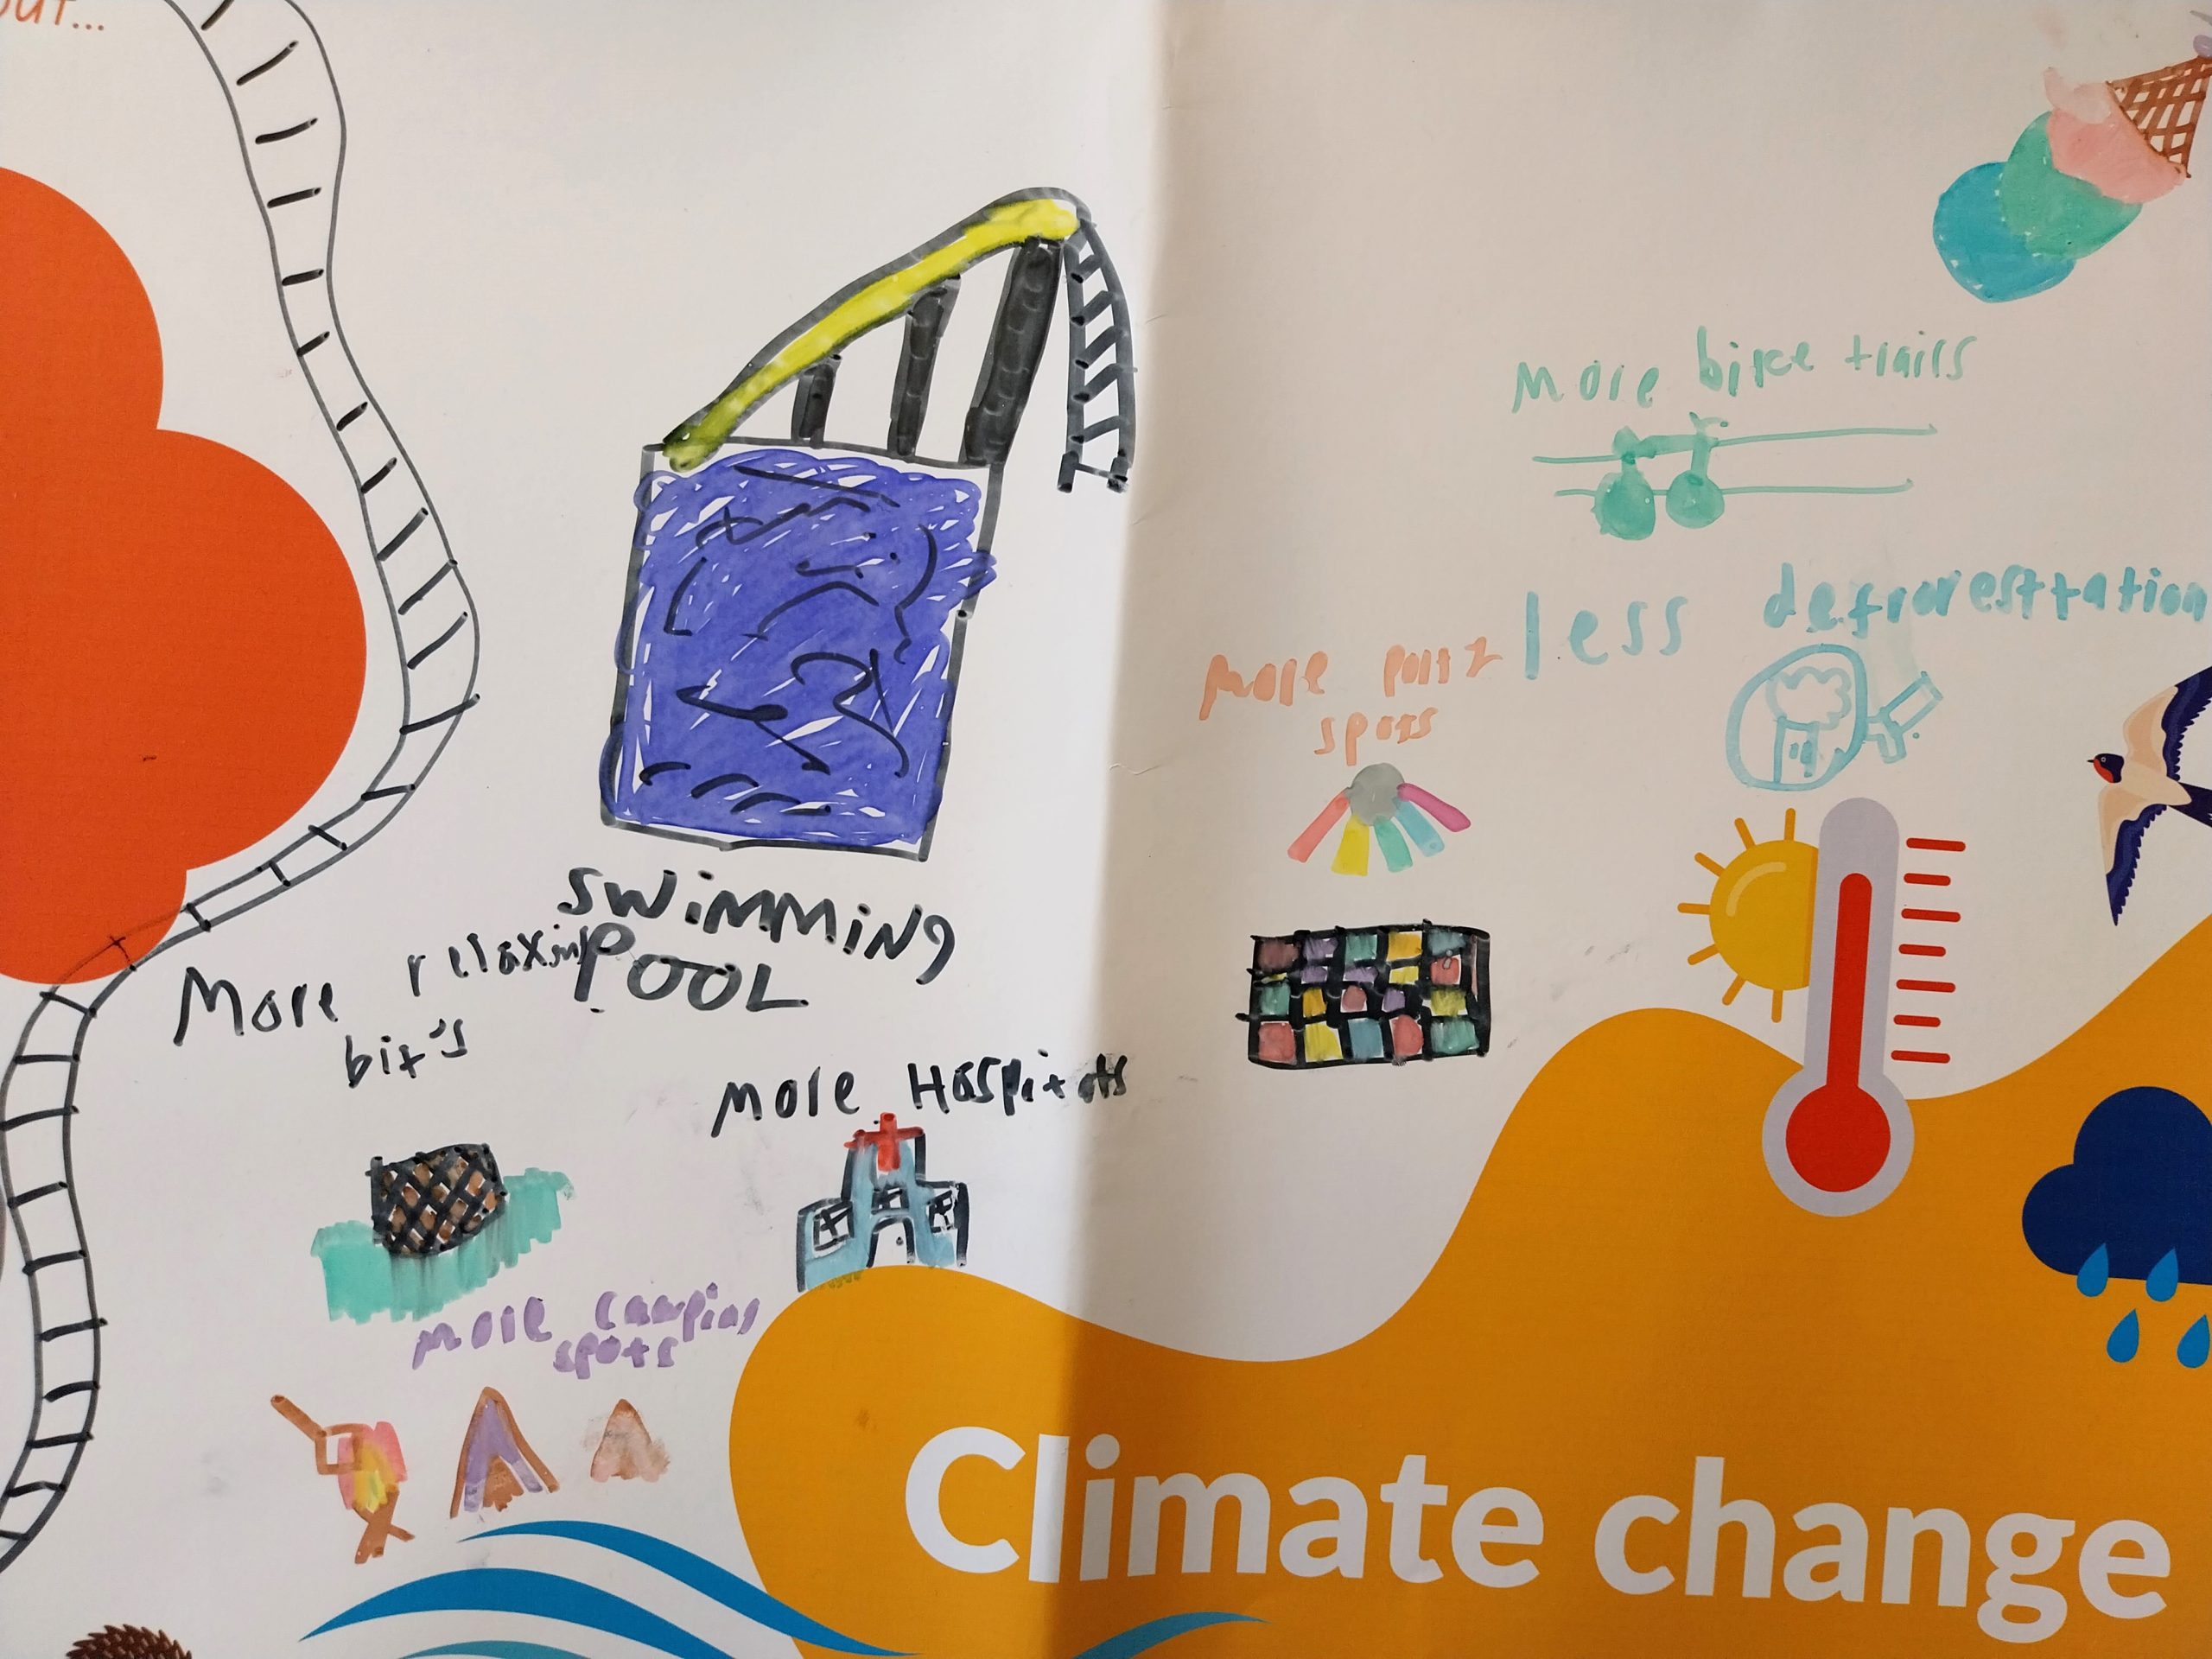 out...
More bike trails
less deforesttation
More
spots
SWiMMiNg
POOL
More relaxing
bit's
More Hospitals
More camping
spots
Climate change